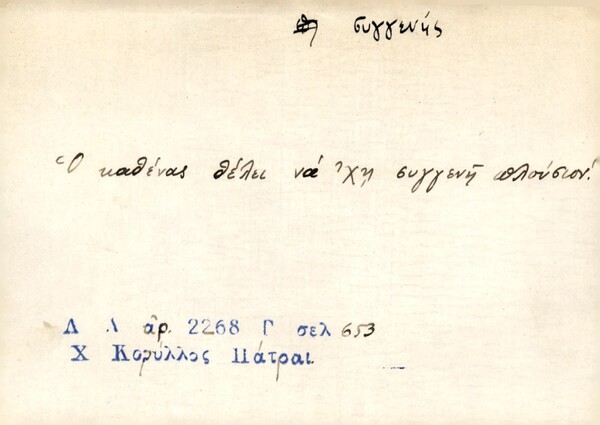 συγγενής
Ὁ καθένας θέλει νά ἔχῃ συγγενῆ πλούσιον.
Λ Α ἀρ. 2268 Γ σελ 653
Χ Κορύλλος Πάτραι